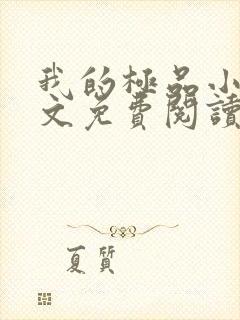 我的極品小
文免費閱讀
夏質